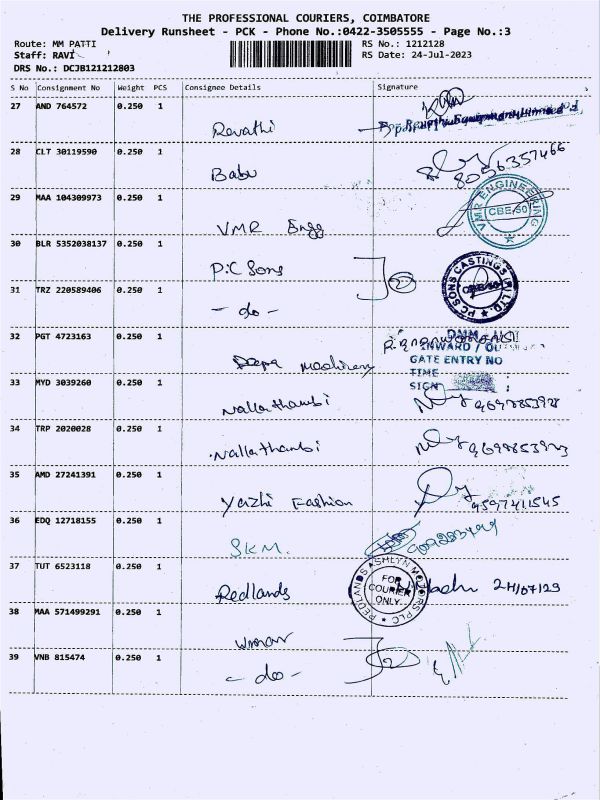 THE PROFESSIONAL COURIERS, COIMBATORE
Delivery Runsheet - PCK - Phone No.:0422-3505555 - Page No.:3
Route: MM PATTI
RS No.: 1212128
Staff: RAVI
RS Date: 24-Jul-2023
DRS No.: DCJB121212803
S No Consignment No Weight PCS Consignee Details Signature
27 AND 764572 0.250 1
Revathi
28 CLT 30119590 0.250 1
Babu 8056357466
29 MAA 104309973 0.250 1
VMR Engg VMR ENGINEERING CBE-50
30 BLR 5352038137 0.250 1
P.C Sons 2 PC SONS CASTINGS (P) LTD.
31 TRZ 220589406 0.250 1
- do -
32 PGT 4723163 0.250 1
INWARD /
Deepa Machinery GATE ENTRY NO
TIME
33 MYD 3039260 0.250 1 SIGN :
Nallathambi
34 TRP 2020028 0.250 1
Nallathambi
35 AMD 27241391 0.250 1
Yazhi Fashion 9597411545
36 EDQ 12718155 0.250 1
SKM.
37 TUT 6523118 0.250 1
Redlands REDLANDS ASHLYN MOTORS PLC FOR COURIER ONLY
38 MAA 571499291 0.250 1
39 VNB 815474 0.250 1
- do - 2